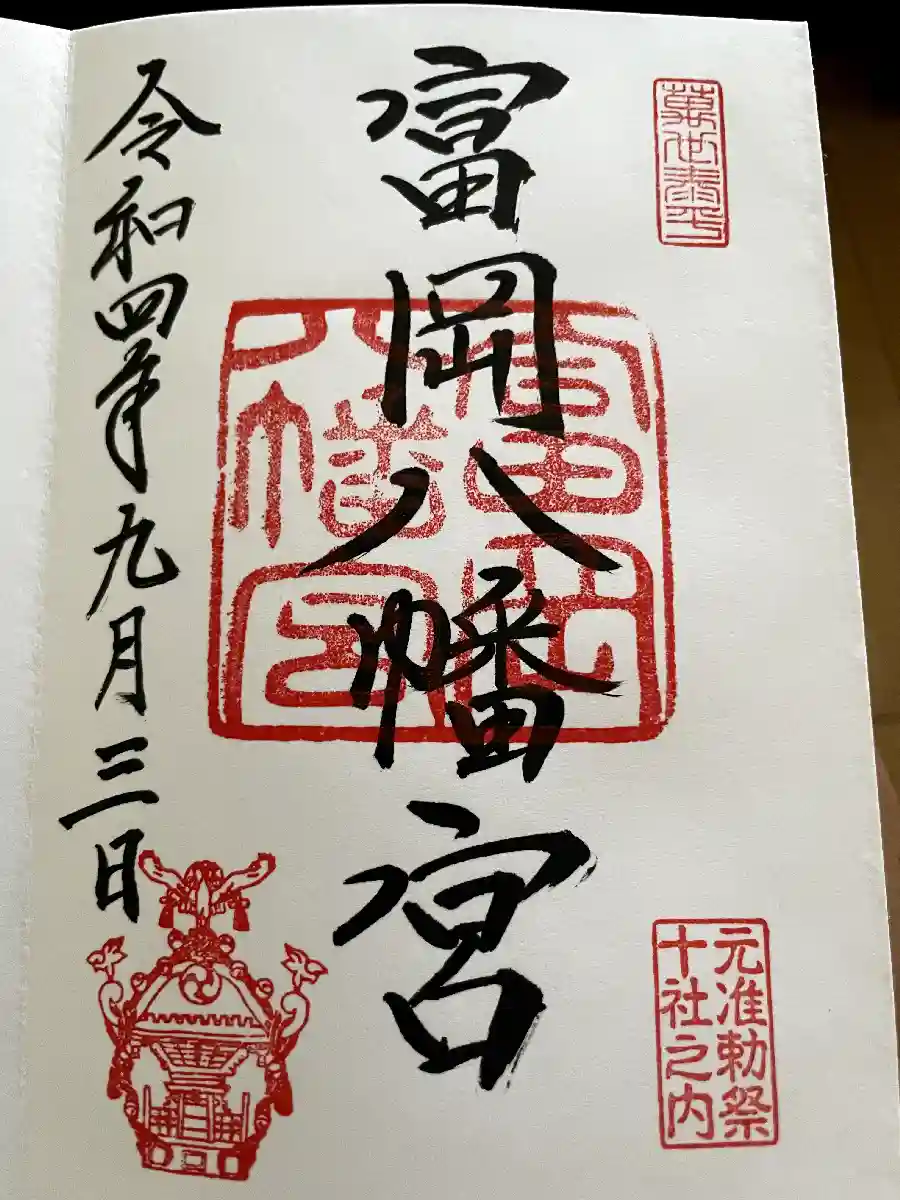 萬世泰平
元准勅祭
十社之内
富岡八幡宮
富岡
八幡宮
令和四年九月三日